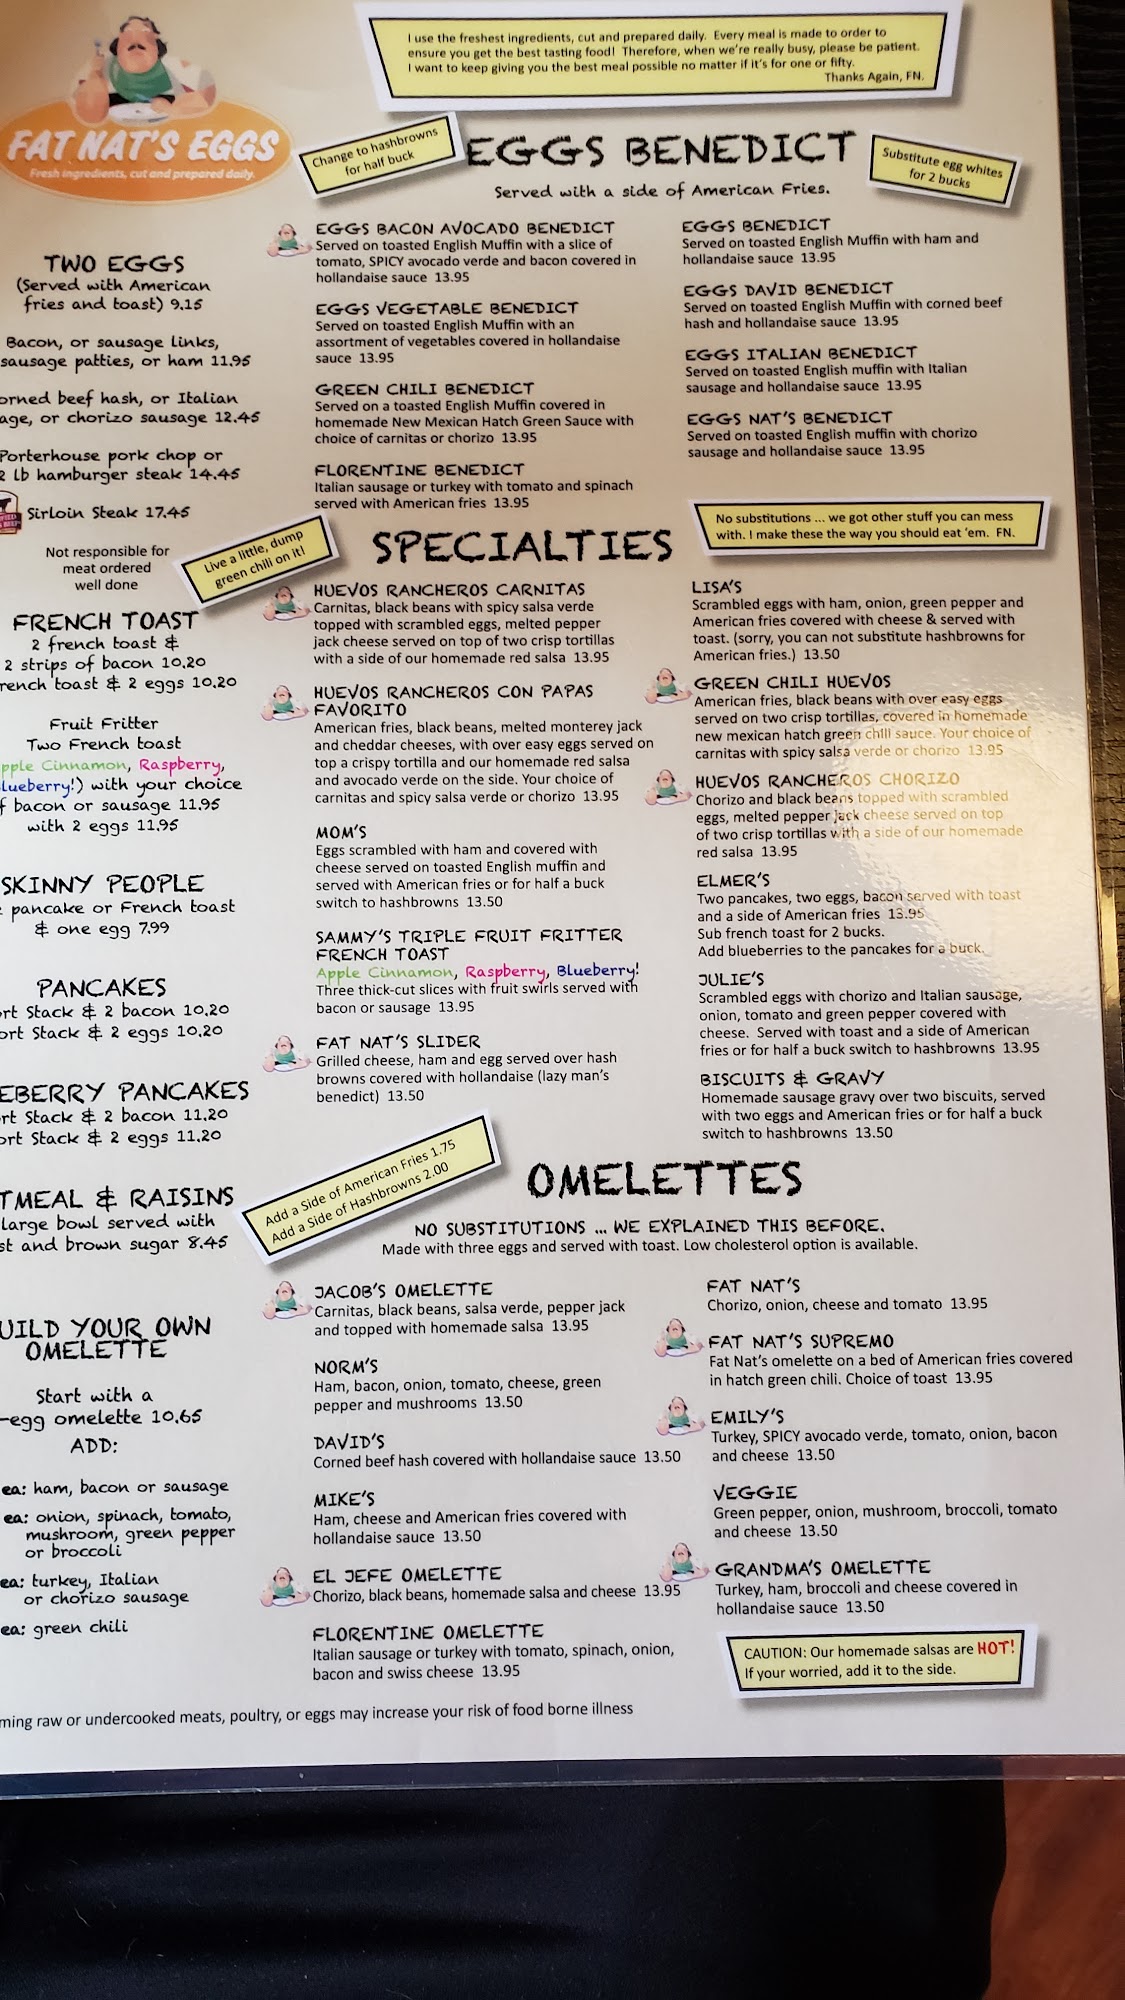 FAT NAT'S EGGS
Fresh ingredients, cut and prepared daily.
I use the freshest ingredients, cut and prepared daily. Every meal is made to order to
ensure you get the best tasting food! Therefore, when we're really busy, please be patient.
I want to keep giving you the best meal possible no matter if it's for one or fifty.
Thanks Again, FN.
TWO EGGS
(Served with American
fries and toast) 9.15
Bacon, or sausage links,
sausage patties, or ham 11.95
hash, or Italian
or chorizo sausage 12.45
Porterhouse pork chop or
lb hamburger steak 14.45
Sirloin Steak 17.45
Not responsible for
meat ordered
well done
FRENCH TOAST
2 french toast &
2 strips of bacon 10.20
toast & 2 eggs 10.20
Fruit Fritter
Two French toast
Cinnamon, Raspberry,
with your choice
bacon or sausage 11.95
with 2 eggs 11.95
SKINNY PEOPLE
pancake or French toast
& one egg 7.99
PANCAKES
Stack & 2 bacon 10.20
Stack & 2 eggs 10.20
PANCAKES
Stack & 2 bacon 11.20
Stack & 2 eggs 11.20
& RAISINS
large bowl served with
and brown sugar 8.45
YOUR OWN
OMELETTE
Start with a
-egg omelette 10.65
ADD:
ea: ham, bacon or sausage
ea: onion, spinach, tomato,
mushroom, green pepper
or broccoli
ea: turkey, Italian
or chorizo sausage
ea: green chili
Change to hashbrowns
for half buck
EGGS BENEDICT
Substitute egg whites
for 2 bucks
Served with a side of American Fries.
EGGS BACON AVOCADO BENEDICT
Served on toasted English Muffin with a slice of
tomato, SPICY avocado verde and bacon covered in
hollandaise sauce 13.95
EGGS VEGETABLE BENEDICT
Served on toasted English Muffin with an
assortment of vegetables covered in hollandaise
sauce 13.95
GREEN CHILI BENEDICT
Served on a toasted English Muffin covered in
homemade New Mexican Hatch Green Sauce with
choice of carnitas or chorizo 13.95
FLORENTINE BENEDICT
Italian sausage or turkey with tomato and spinach
served with American fries 13.95
EGGS BENEDICT
Served on toasted English Muffin with ham and
hollandaise sauce 13.95
EGGS DAVID BENEDICT
Served on toasted English Muffin with corned beef
hash and hollandaise sauce 13.95
EGGS ITALIAN BENEDICT
Served on toasted English muffin with Italian
sausage and hollandaise sauce 13.95
EGGS NAT'S BENEDICT
Served on toasted English muffin with chorizo
sausage and hollandaise sauce 13.95
Live a little, dump
green chili on it!
SPECIALTIES
No substitutions ... we got other stuff you can mess
with. I make these the way you should eat 'em. FN.
HUEVOS RANCHEROS CARNITAS
Carnitas, black beans with spicy salsa verde
topped with scrambled eggs, melted pepper
jack cheese served on top of two crisp tortillas
with a side of our homemade red salsa 13.95
HUEVOS RANCHEROS CON PAPAS
FAVORITO
American fries, black beans, melted monterey jack
and cheddar cheeses, with over easy eggs served on
top a crispy tortilla and our homemade red salsa
and avocado verde on the side. Your choice of
carnitas and spicy salsa verde or chorizo 13.95
MOM'S
Eggs scrambled with ham and covered with
cheese served on toasted English muffin and
served with American fries or for half a buck
switch to hashbrowns 13.50
SAMMY'S TRIPLE FRUIT FRITTER
FRENCH TOAST
Apple Cinnamon, Raspberry, Blueberry!
Three thick-cut slices with fruit swirls served with
bacon or sausage 13.95
FAT NAT'S SLIDER
Grilled cheese, ham and egg served over hash
browns covered with hollandaise (lazy man's
benedict) 13.50
LISA'S
Scrambled eggs with ham, onion, green pepper and
American fries covered with cheese & served with
toast. (sorry, you can not substitute hashbrowns for
American fries.) 13.50
GREEN CHILI HUEVOS
American fries, black beans with over easy eggs
served on two crisp tortillas, covered in homemade
new mexican hatch green chili sauce. Your choice of
carnitas with spicy salsa verde or chorizo 13.95
HUEVOS RANCHEROS CHORIZO
Chorizo and black beans topped with scrambled
eggs, melted pepper jack cheese served on top
of two crisp tortillas with a side of our homemade
red salsa 13.95
ELMER'S
Two pancakes, two eggs, bacon served with toast
and a side of American fries 13.95
Sub french toast for 2 bucks.
Add blueberries to the pancakes for a buck.
JULIE'S
Scrambled eggs with chorizo and Italian sausage,
onion, tomato and green pepper covered with
cheese. Served with toast and a side of American
fries or for half a buck switch to hashbrowns 13.95
BISCUITS & GRAVY
Homemade sausage gravy over two biscuits, served
with two eggs and American fries or for half a buck
switch to hashbrowns 13.50
Add a Side of American Fries 1.75
Add a Side of Hashbrowns 2.00
OMELETTES
NO SUBSTITUTIONS ... WE EXPLAINED THIS BEFORE.
Made with three eggs and served with toast. Low cholesterol option is available.
JACOB'S OMELETTE
Carnitas, black beans, salsa verde, pepper jack
and topped with homemade salsa 13.95
NORM'S
Ham, bacon, onion, tomato, cheese, green
pepper and mushrooms 13.50
DAVID'S
Corned beef hash covered with hollandaise sauce 13.50
MIKE'S
Ham, cheese and American fries covered with
hollandaise sauce 13.50
EL JEFE OMELETTE
Chorizo, black beans, homemade salsa and cheese 13.95
FLORENTINE OMELETTE
Italian sausage or turkey with tomato, spinach, onion,
bacon and swiss cheese 13.95
FAT NAT'S
Chorizo, onion, cheese and tomato 13.95
FAT NAT'S SUPREMO
Fat Nat's omelette on a bed of American fries covered
in hatch green chili. Choice of toast 13.95
EMILY'S
Turkey, SPICY avocado verde, tomato, onion, bacon
and cheese 13.50
VEGGIE
Green pepper, onion, mushroom, broccoli, tomato
and cheese 13.50
GRANDMA'S OMELETTE
Turkey, ham, broccoli and cheese covered in
hollandaise sauce 13.50
CAUTION: Our homemade salsas are HOT!
If your worried, add it to the side.
raw or undercooked meats, poultry, or eggs may increase your risk of food borne illness